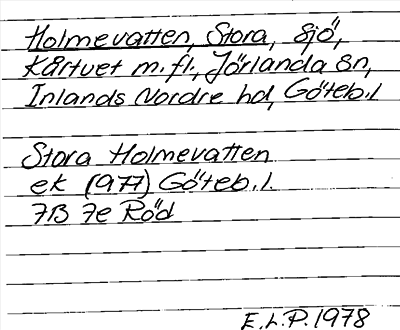 Holmevatten, Stora, sjö,
Kårtvet m.fl., Jörlanda sn,
Inlands Nordre hd, Göteb.l
Stora Holmevatten
ek (977) Göteb.l.
7B 7e Röd
E.L.P. 1978